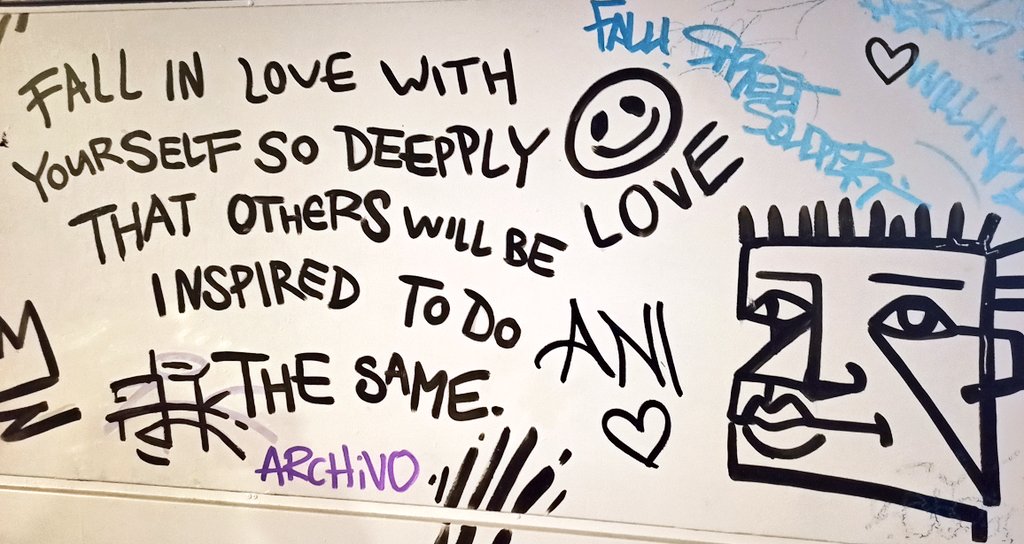 FALL IN LOVE WITH
YOURSELF SO DEEPPLY
THAT OTHERS WILL BE
INSPIRED TO DO
THE SAME.
ARCHiVO
LOVE
ANI
FALL!
STREET
SOLDIER.